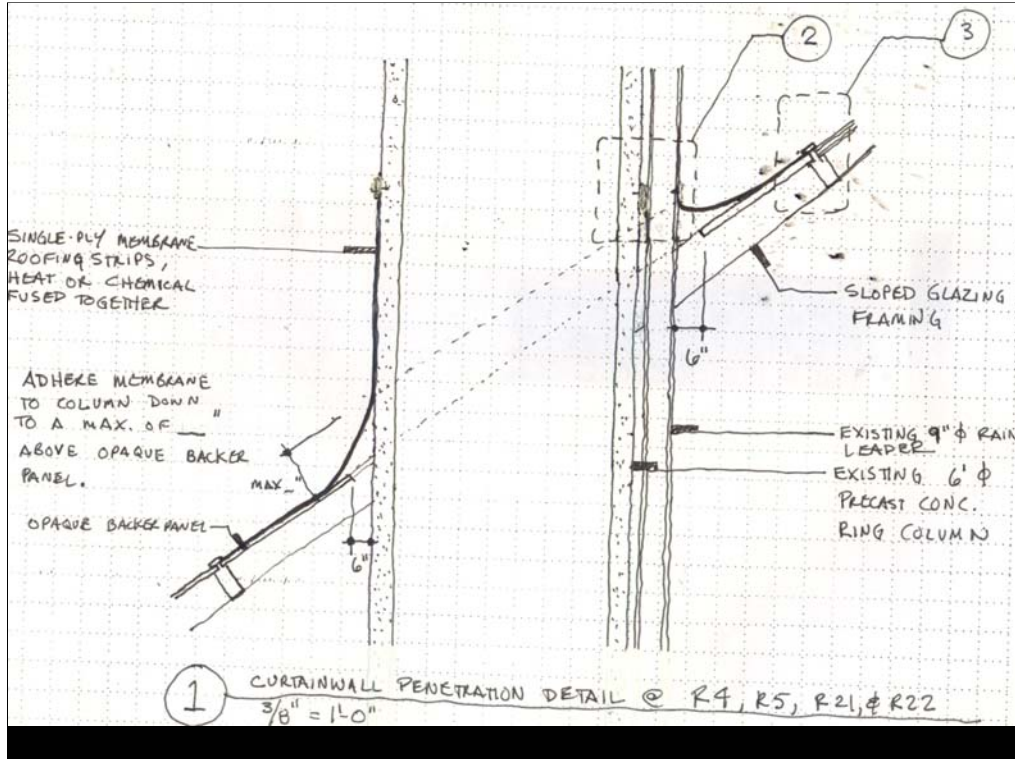 2
3
SINGLE-PLY MEMBRANE
ROOFING STRIPS,
HEAT OR CHEMICAL
FUSED TOGETHER
ADHERE MEMBRANE
TO COLUMN DOWN
TO A MAX. OF __"
ABOVE OPAQUE BACKER
PANEL.
MAX_"
OPAQUE BACKER PANEL
6"
6"
SLOPED GLAZING
FRAMING
EXISTING 9"φ RAIN
LEADER
EXISTING 6'φ
PRECAST CONC.
RING COLUMN
1
CURTAINWALL PENETRATION DETAIL @ R4, R5, R21, & R22
3/8" = 1'-0"